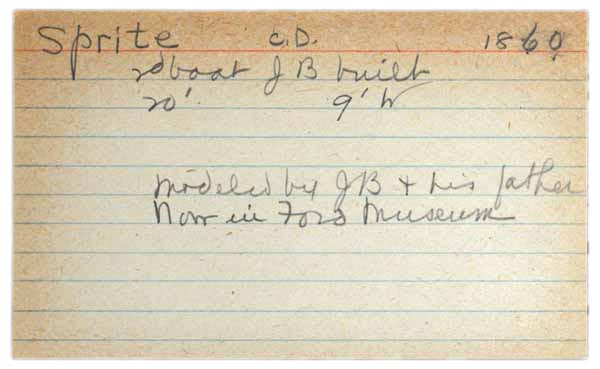 Sprite C.D. 1860
2d boat JB built
20' 9' W
Modeled by JB + his father
Now in Ford Museum